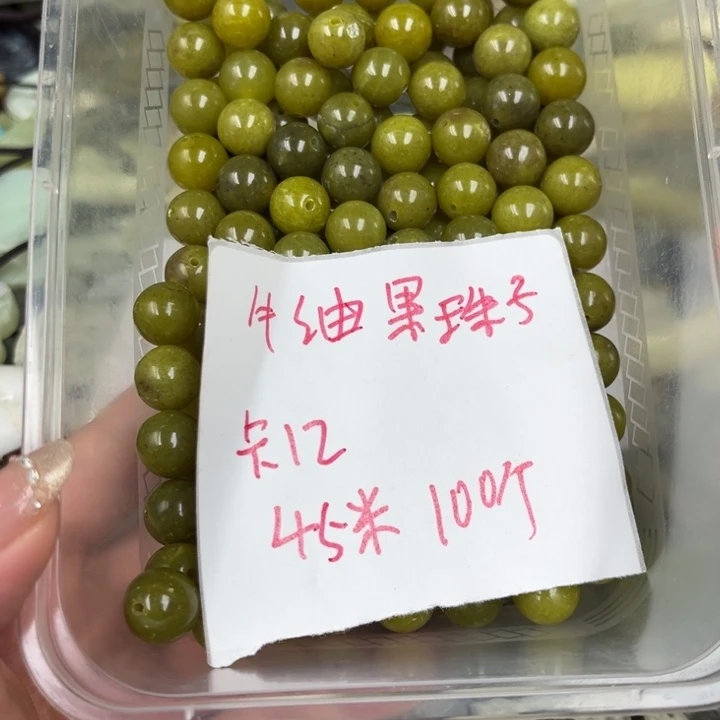 牛油果珠子
卡12
45米 100个